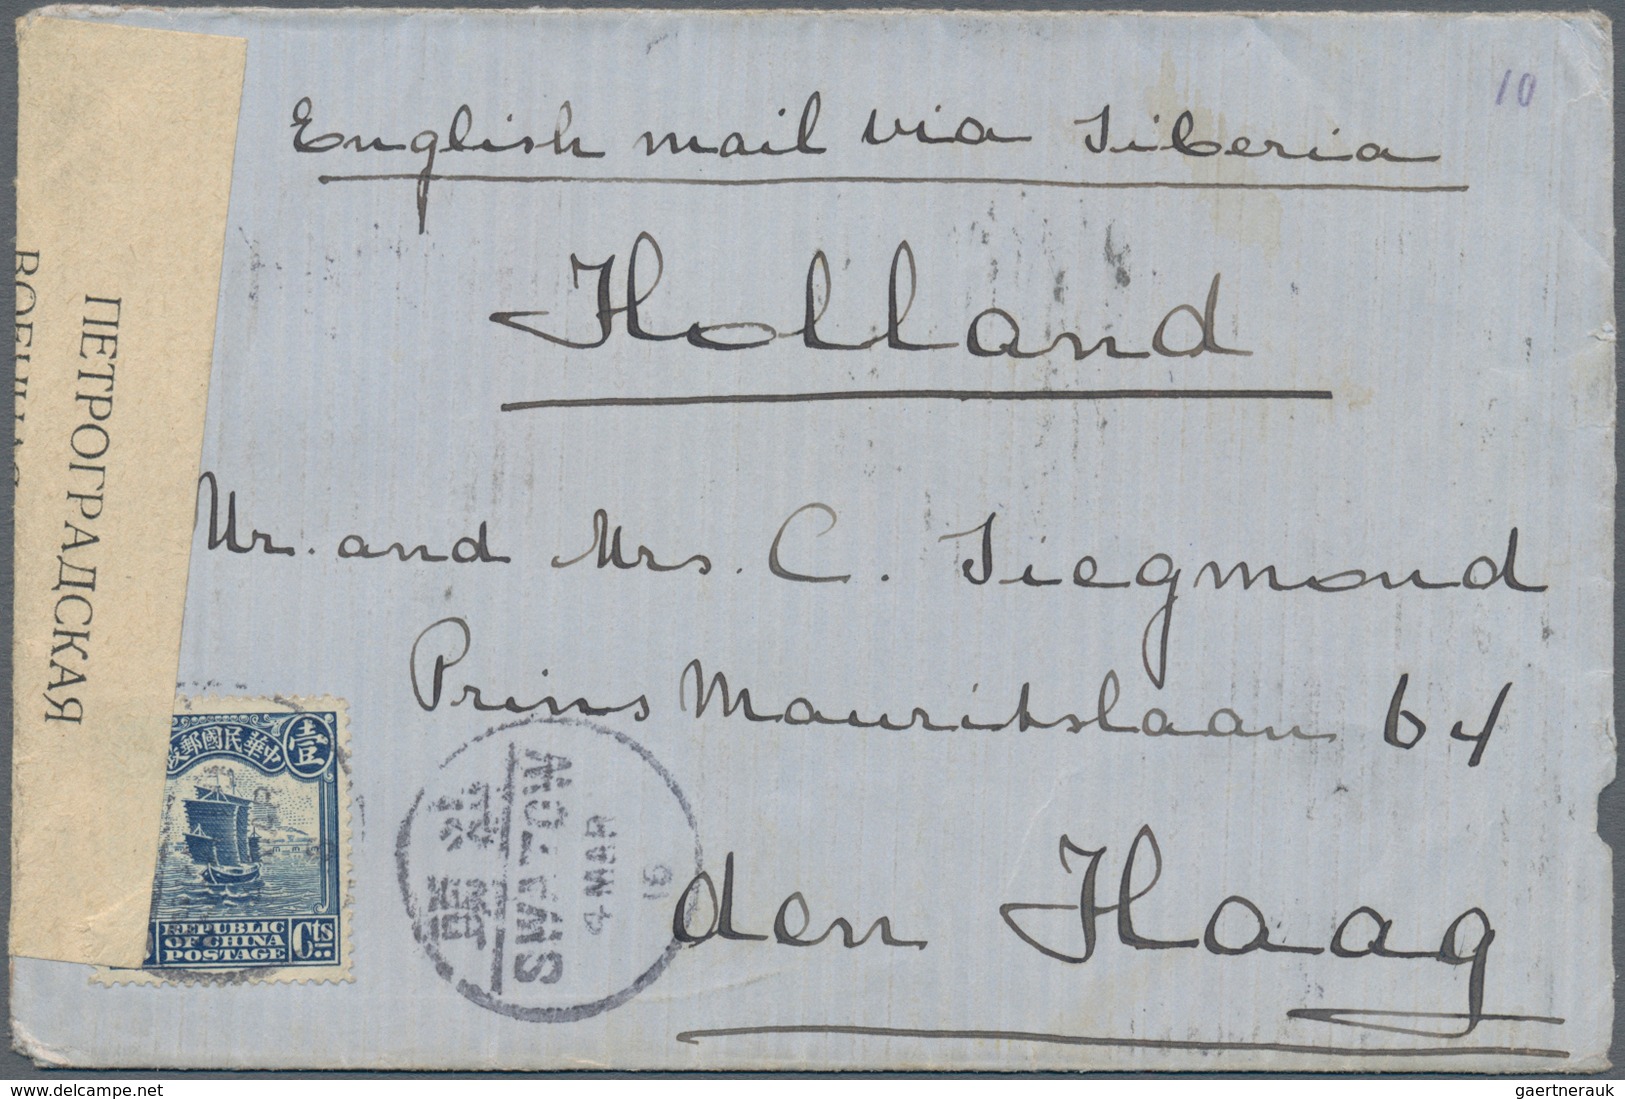 10
English mail via Siberia
Holland
Mr. and Mrs. C. Siegmond
Prins Mauritslaan 64
den Haag
ПЕТРОГРАДСКАЯ
ВОЕННАЯ
中華民國郵政
壹
REPUBLIC
OF CHINA
POSTAGE
Cts
SWATOW
4 MAR
16
gaertnerauk @ delcampe.net